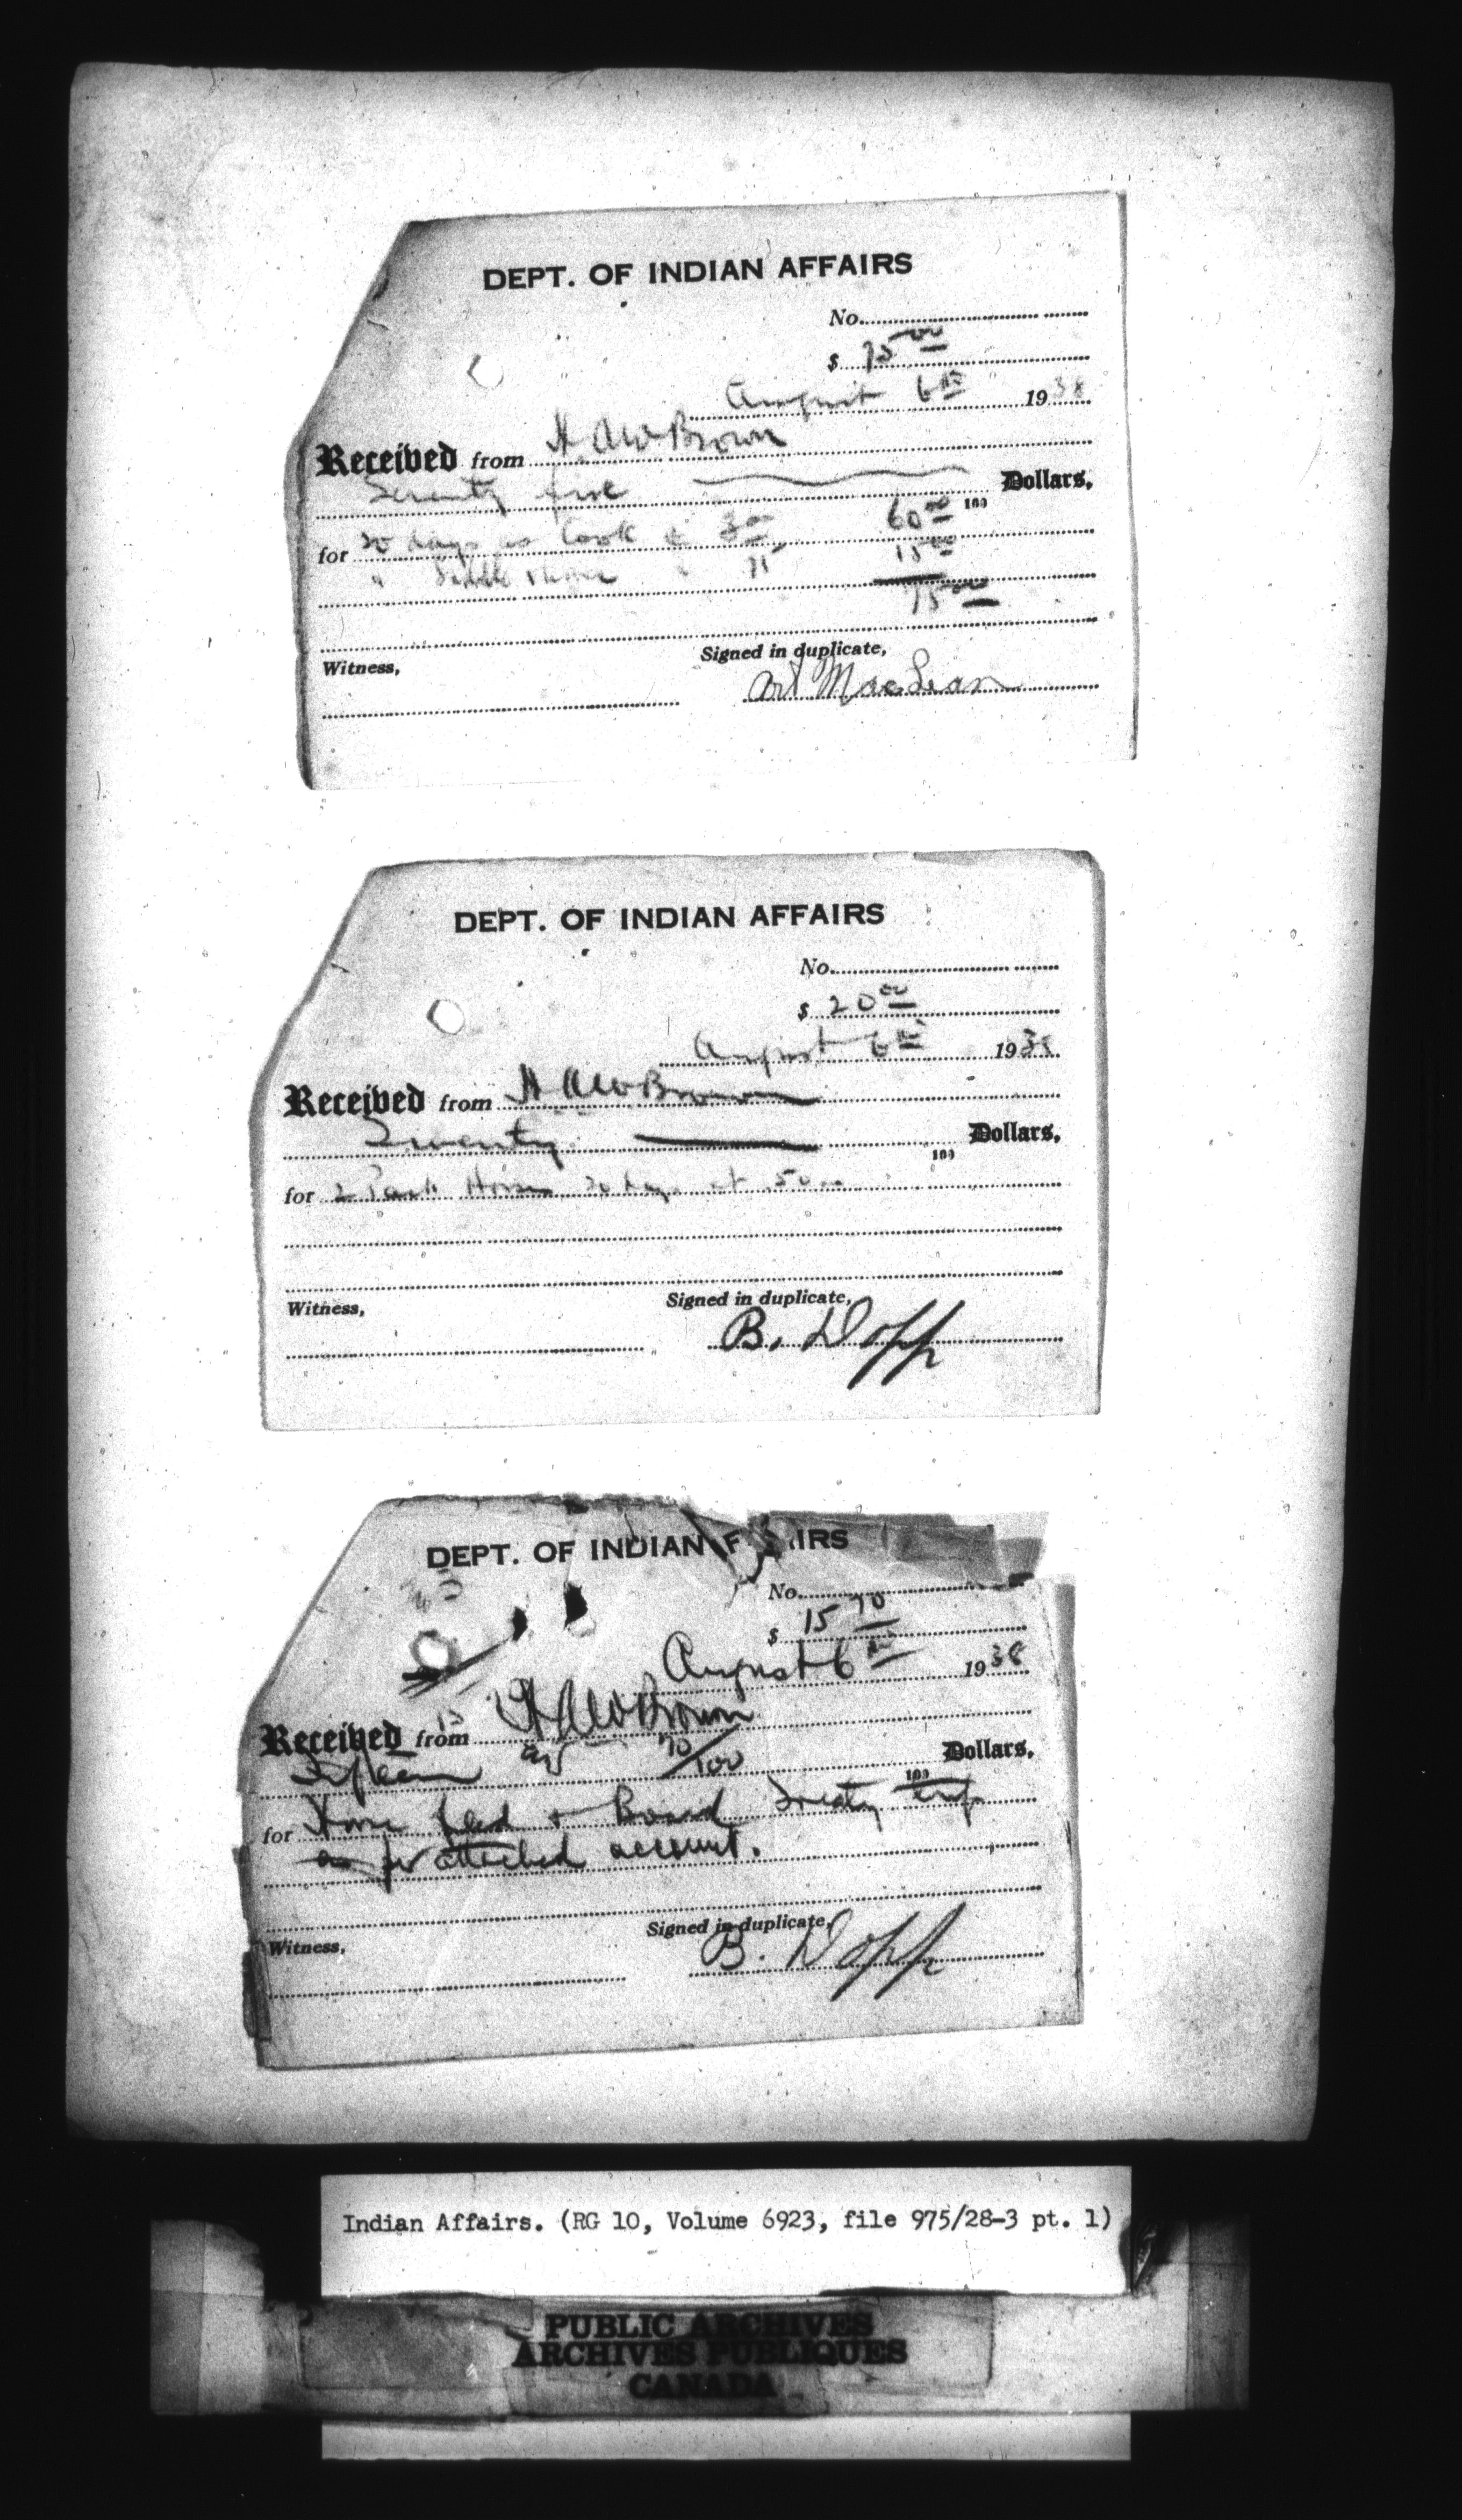 DEPT. OF INDIAN AFFAIRS
No.
$ 75 00
August 6th 1938
Received from H AW Brown
Seventy five Dollars,
100
for 20 days as Cook @ 3 00 60 00
" Saddle Horse " 75 15 00
75 00
Witness, Signed in duplicate,
Art MacLean
DEPT. OF INDIAN AFFAIRS
No.
$ 20 00
August 6th 1938
Received from H AW Brown
Twenty Dollars,
100
for 2 Pack Horses 20 days at .50
Witness, Signed in duplicate,
B. Dopp
DEPT. OF INDIAN AFFAIRS
No.
$ 15 70
August 6th 1938
Received from H AW Brown
Fifteen and 70/100 Dollars,
100
for Horse feed & Board Treaty trip
as per attached account.
Witness, Signed in duplicate,
B. Dopp
Indian Affairs. (RG 10, Volume 6923, file 975/28-3 pt. 1)
PUBLIC ARCHIVES
ARCHIVES PUBLIQUES
CANADA